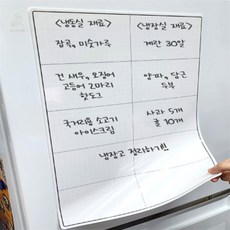 <냉동실 재료>
<냉장실 재료>
잡곡, 미숫가루
계란 30알
건 새우, 오징어
고등어 2마리
핫도그
양파, 당근
두부
국거리용 소고기
아이스크림
사과 5개
귤 10개
냉장고 정리하기!!